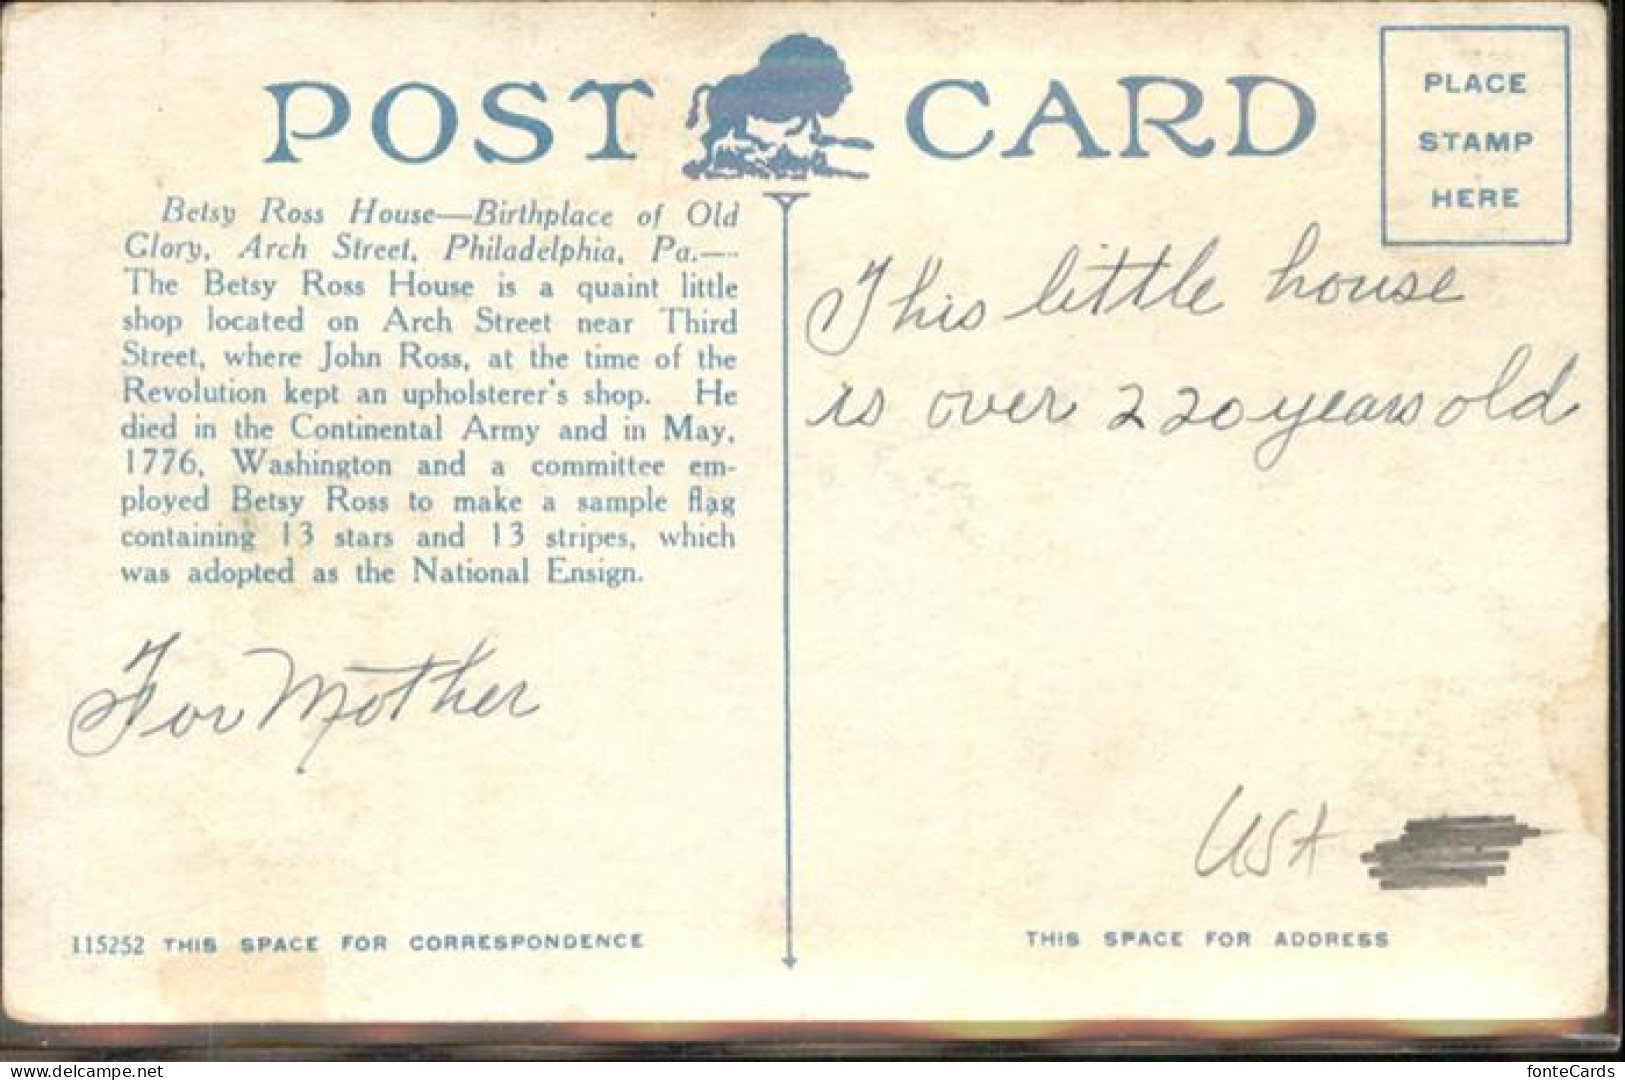 POST CARD
PLACE
STAMP
HERE
Betsy Ross House—Birthplace of Old
Glory, Arch Street, Philadelphia, Pa.—
The Betsy Ross House is a quaint little
shop located on Arch Street near Third
Street, where John Ross, at the time of the
Revolution kept an upholsterer's shop. He
died in the Continental Army and in May,
1776, Washington and a committee em-
ployed Betsy Ross to make a sample flag
containing 13 stars and 13 stripes, which
was adopted as the National Ensign.
For Mother
This little house
is over 220 years old
USA
115252 THIS SPACE FOR CORRESPONDENCE
THIS SPACE FOR ADDRESS
delcampe.net
fonteCards